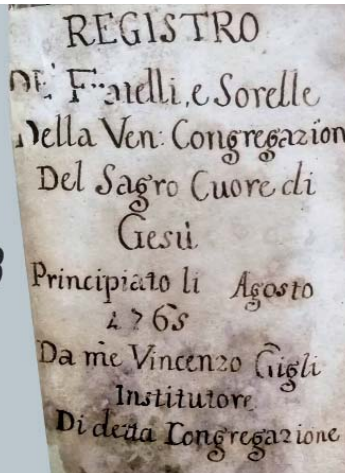 REGISTRO
DE' Fratelli, e Sorelle
Della Ven: Congregazion
Del Sagro Cuore di
Gesù
Principiato li Agosto
1765
Da me Vincenzo Gigli
Institutore
Di detta Congregazione